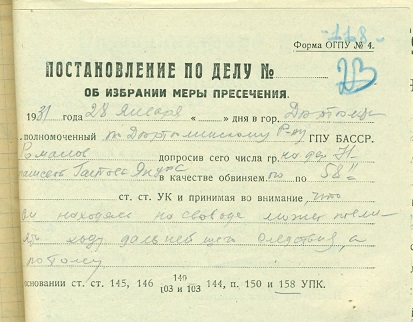 -118-
Форма ОГПУ № 4.
ПОСТАНОВЛЕНИЕ ПО ДЕЛУ №
23
ОБ ИЗБРАНИИ МЕРЫ ПРЕСЕЧЕНИЯ.
1931 года 28 Января « » дня в гор.
полномоченный по Р-ну ГПУ БАССР.
допросив сего числа гр. на дер.
в качестве обвиняем по по 58
ст. ст. УК и принимая во внимание что
находясь на свободе может
ходу дальнейшего следствия, а
потому
основании ст. ст. 145, 146 140/103 и 103 144, п. 150 и 158 УПК.